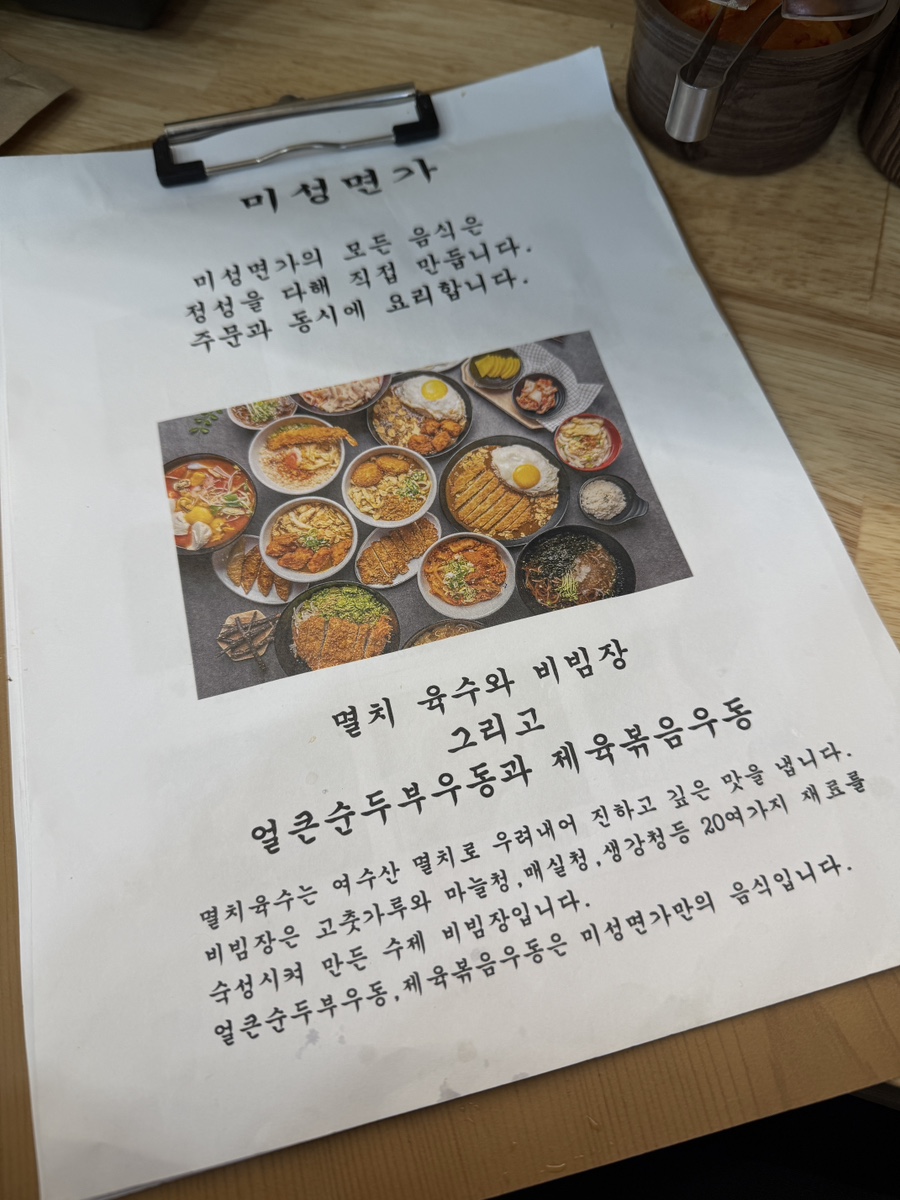 미성면가
미성면가의 모든 음식은
정성을 다해 직접 만듭니다.
주문과 동시에 요리합니다.
멸치 육수와 비빔장
그리고
얼큰순두부우동과 제육볶음우동
멸치육수는 여수산 멸치로 우려내어 진하고 깊은 맛을 냅니다.
비빔장은 고춧가루와 마늘청,매실청,생강청등 20여가지 재료를
숙성시켜 만든 수제 비빔장입니다.
얼큰순두부우동,제육볶음우동은 미성면가만의 음식입니다.